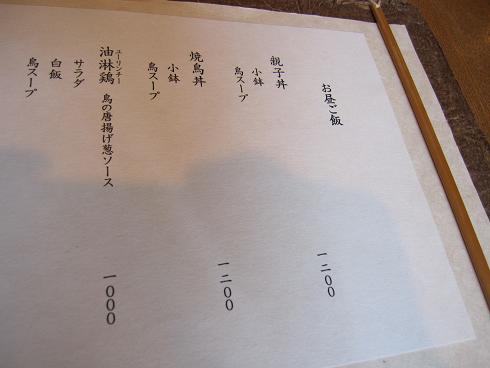 お昼ご飯
親子丼 一二00
小鉢
鳥スープ
焼鳥丼 一二00
小鉢
鳥スープ
ユーリンチー
油淋鶏 鳥の唐揚げ葱ソース 一000
サラダ
白飯
鳥スープ